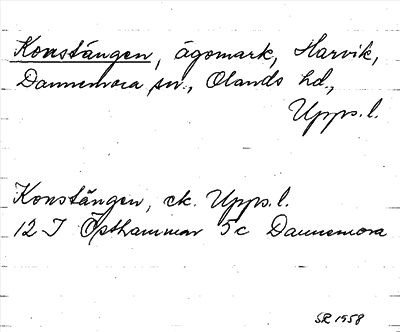 Konstängen, ägomark, Harvik,
Dannemora sn., Olands hd.,
Upps. l.
Konstängen, ek. Upps. l.
12 I Östhammar 5 c Dannemora
SR 1958